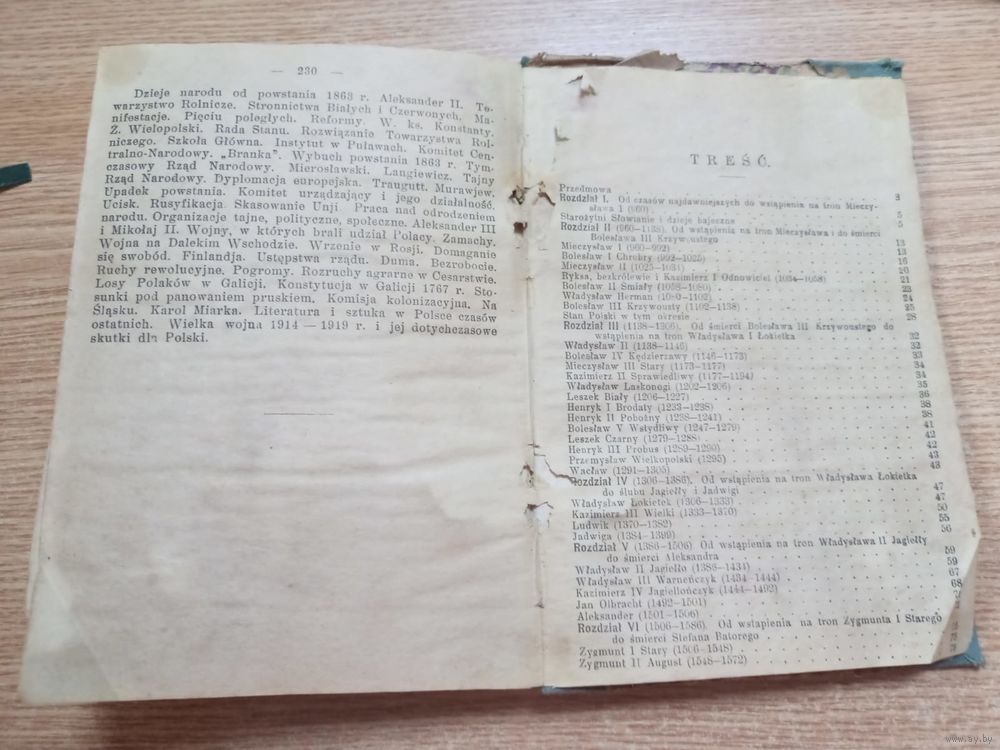 — 230 —
Dzieje narodu od powstania 1863 r. Aleksander II. To-
warzystwo Rolnicze. Stronnictwa Białych i Czerwonych. Ma-
nifestacje. Pięciu poległych. Reformy. W. ks. Konstanty.
Z. Wielopolski. Rada Stanu. Rozwiązanie Towarzystwa Rol-
niczego. Szkoła Główna. Instytut w Puławach. Komitet Cen-
tralno-Narodowy. „Branka". Wybuch powstania 1863 r. Tym-
czasowy Rząd Narodowy. Mierosławski. Langiewicz. Tajny
Rząd Narodowy. Dyplomacja europejska. Traugutt. Murawjew.
Upadek powstania. Komitet urządzający i jego działalność.
Ucisk. Rusyfikacja. Skasowanie Unji. Praca nad odrodzeniem
narodu. Organizacje tajne, polityczne, społeczne. Aleksander III
i Mikołaj II. Wojny, w których brali udział Polacy. Zamachy.
Wojna na Dalekim Wschodzie. Wrzenie w Rosji. Domaganie
się swobód. Finlandja. Ustępstwa rządu. Duma. Bezrobocie.
Ruchy rewolucyjne. Pogromy. Rozruchy agrarne w Cesarstwie.
Losy Polaków w Galicji. Konstytucja w Galicji 1767 r. Sto-
sunki pod panowaniem pruskiem. Komisja kolonizacyjna. Na
Śląsku. Karol Miarka. Literatura i sztuka w Polsce czasów
ostatnich. Wielka wojna 1914 — 1919 r. i jej dotychczasowe
skutki dla Polski.
TREŚĆ.
Przedmowa
Rozdział I. Od czasów najdawniejszych do wstąpienia na tron Mieczy- 3
sława I (960)
Starożytni Słowianie i dzieje bajeczne 5
Rozdział II (960—1138). Od wstąpienia na tron Mieczysława i do śmierci 5
Bolesława III Krzywoustego
Mieczysław I (960—992) 13
Bolesław I Chrobry (992—1025) 13
Mieczysław II (1025—1034) 16
Ryksa, bezkrólewie i Kazimierz I Odnowiciel (1034—1058) 20
Bolesław II Śmiały (1058—1080) 21
Władysław Herman (1080—1102) 23
Bolesław III Krzywousty (1102—1138) 24
Stan Polski w tym okresie 25
Rozdział III (1138—1306). Od śmierci Bolesława III Krzywoustego do 28
wstąpienia na tron Władysława I Łokietka
Władysław II (1138—1146) 32
Bolesław IV Kędzierzawy (1146—1173) 32
Mieczysław III Stary (1173—1177) 33
Kazimierz II Sprawiedliwy (1177—1194) 34
Władysław Laskonogi (1202—1206) 34
Leszek Biały (1206—1227) 35
Henryk I Brodaty (1233—1238) 36
Henryk II Pobożny (1238—1241) 38
Bolesław V Wstydliwy (1247—1279) 38
Leszek Czarny (1279—1288) 41
Henryk III Probus (1289—1290) 42
Przemysław Wielkopolski (1295) 42
Wacław (1291—1305) 43
Rozdział IV (1306—1386). Od wstąpienia na tron Władysława Łokietka 43
do ślubu Jagiełły i Jadwigi
Władysław Łokietek (1306—1333) 47
Kazimierz III Wielki (1333—1370) 47
Ludwik (1370—1382) 50
Jadwiga (1384—1399) 55
Rozdział V (1386—1506). Od wstąpienia na tron Władysława II Jagiełły 56
do śmierci Aleksandra
Władysław II Jagiełło (1386—1434) 59
Władysław III Warneńczyk (1434—1444) 59
Kazimierz IV Jagiellończyk (1444—1492) 67
Jan Olbracht (1492—1501) 68
Aleksander (1501—1506)
Rozdział VI (1506—1586). Od wstąpienia na tron Zygmunta I Starego
do śmierci Stefana Batorego
Zygmunt I Stary (1506—1548)
Zygmunt II August (1548—1572)
www.ay.by